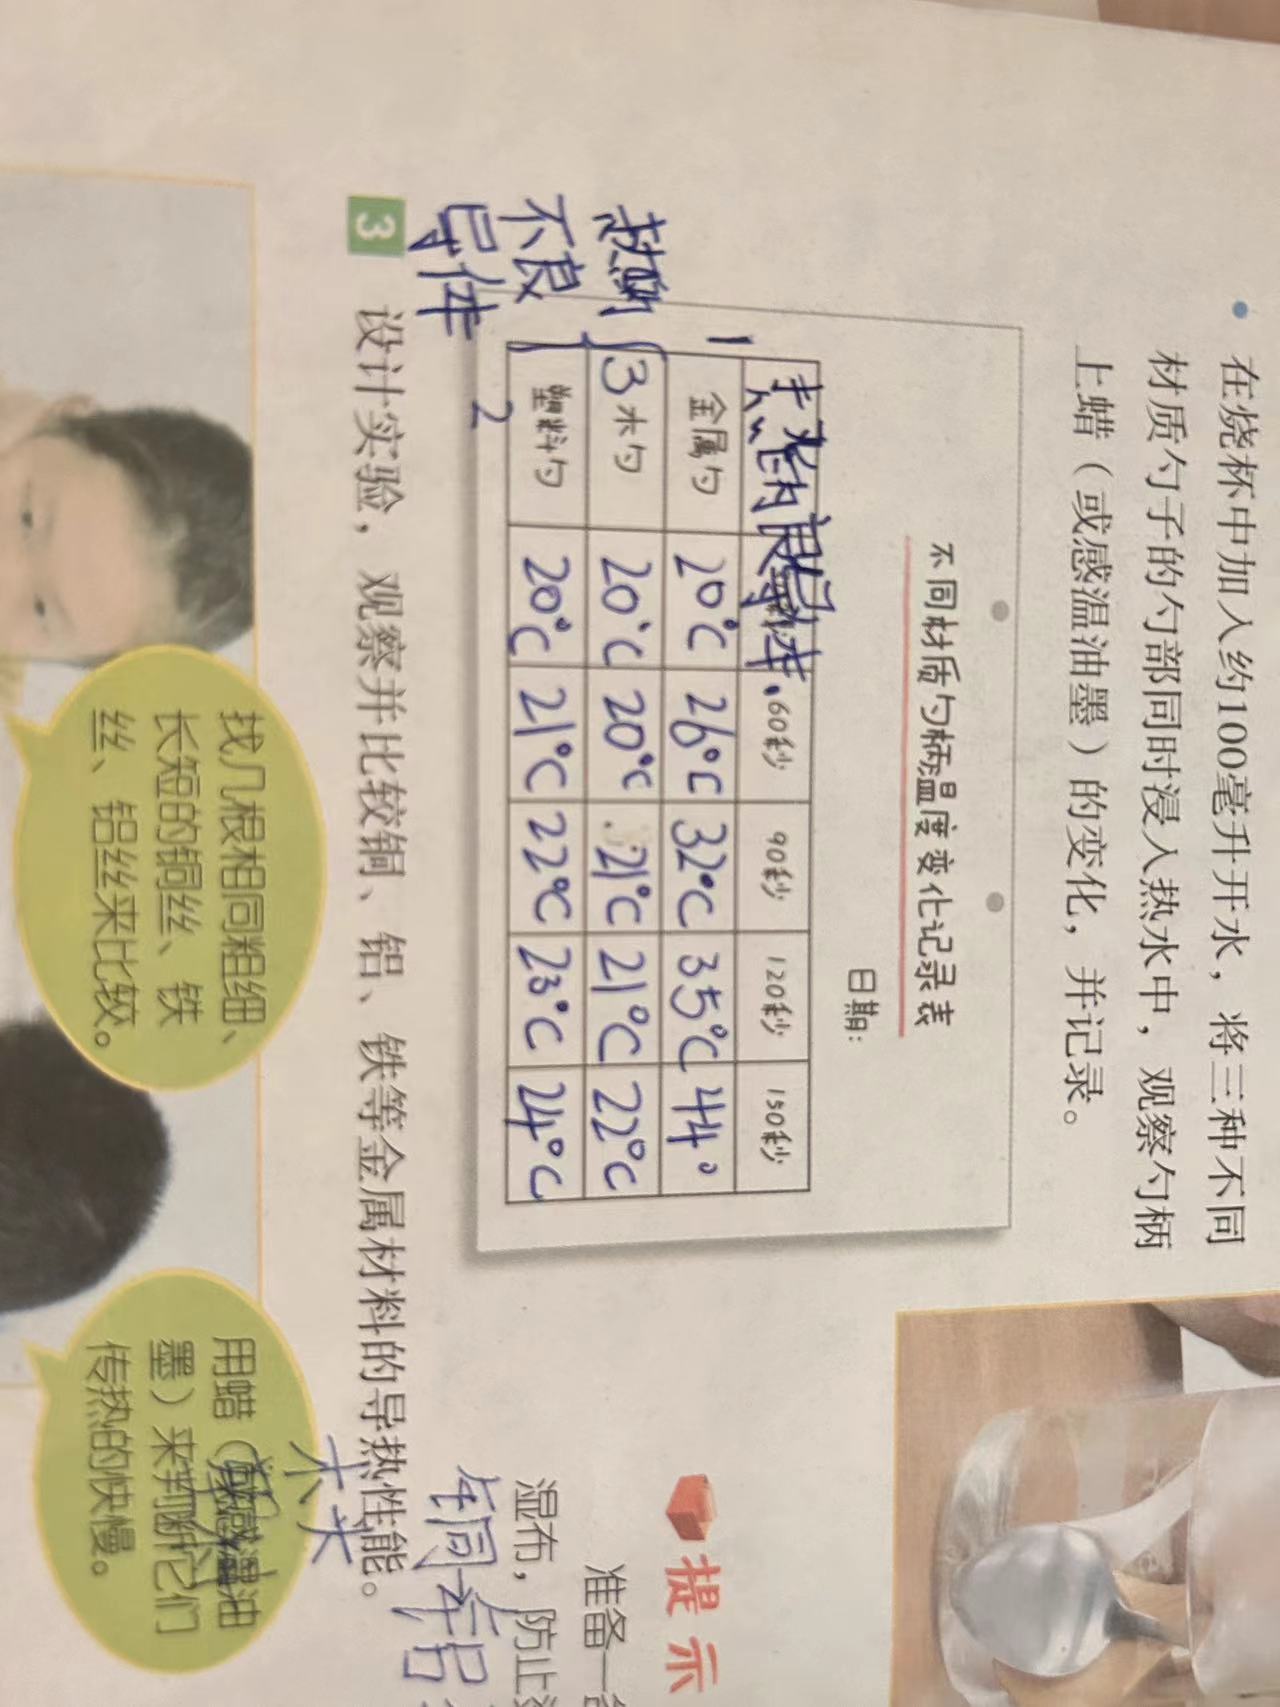 在烧杯中加入约100毫升开水，将三种不同
材质勺子的勺部同时浸入热水中，观察勺柄
上蜡（或感温油墨）的变化，并记录。
不同材质勺柄温度变化记录表
日期：
热的良导体
60秒 90秒 120秒 150秒
1 金属勺 20°C 26°C 32°C 35°C 44°
3 木勺 20°C 20°C 21°C 21°C 22°C
2 塑料勺 20°C 21°C 22°C 23°C 24°C
热的
不良
导体
提示
准备一
湿布，防止
3 设计实验，观察并比较铜、铝、铁等金属材料的导热性能。
铜
木头
找几根相同粗细、
长短的铜丝、铁
丝、铝丝来比较。
用蜡（或感温油
墨）来判断它们
传热的快慢。